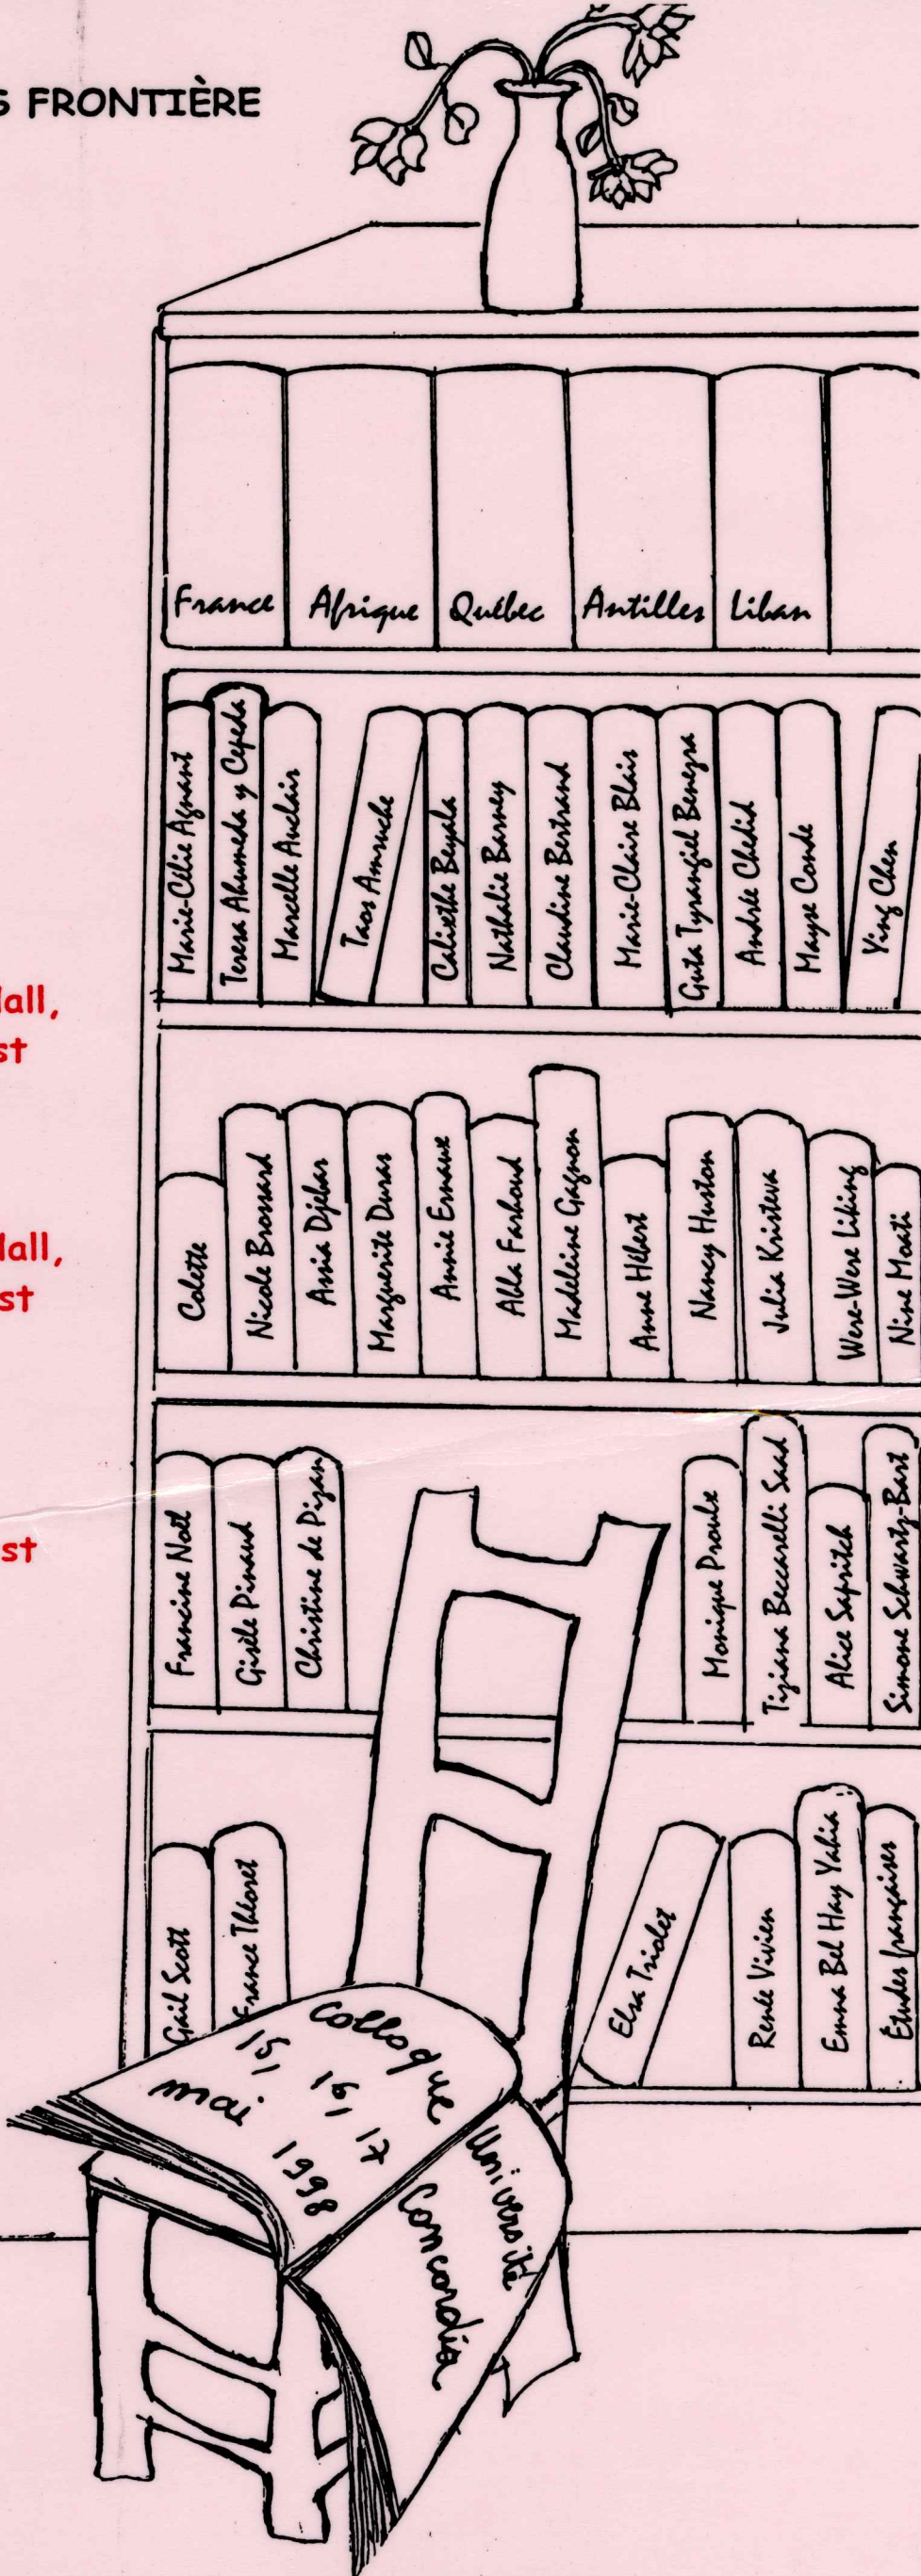 S FRONTIÈRE
France
Afrique
Québec
Antilles
Liban
Marie-Célie Agnant
Teresa Ahumeda y Cepeda
Marcelle Auclair
Taos Amruche
Calisthe Beyala
Nathalie Barney
Claudine Bertrand
Marie-Claire Blais
Guta Tyrangiel Benezra
Andrée Chedid
Mayse Conde
Ying Chen
Hall,
st
Colette
Nicole Brossard
Assia Djebar
Marguerite Duras
Annie Ernaux
Abla Farhoud
Madeleine Gagnon
Anne Hébert
Nancy Huston
Julia Kristeva
Were-Were Liking
Nine Moati
Hall,
st
Francine Noël
Gisèle Pinaud
Christine de Pizan
Monique Proulx
Tiziana Beccarelli Saad
Alice Sapritch
Simone Schwartz-Bart
st
Gail Scott
France Théoret
Elsa Triolet
Renée Vivien
Emna Bel Hay Yahia
Études françaises
Colloque
15, 16, 17
mai 1998
Université
Concordia